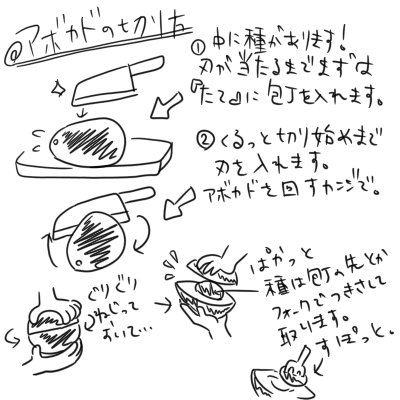 @アボカドの切り方
① 中に種があります!
刃が当たるまでまずは
『たて』に包丁を入れます。
② くるっと切り始めまで
刃を入れます。
アボカドを回すカンジで。
ぐりぐり
ねじって
おいて…
ぱかっと
種は包丁の先とか
フォークでつきさして
取ります。
すぽっと。